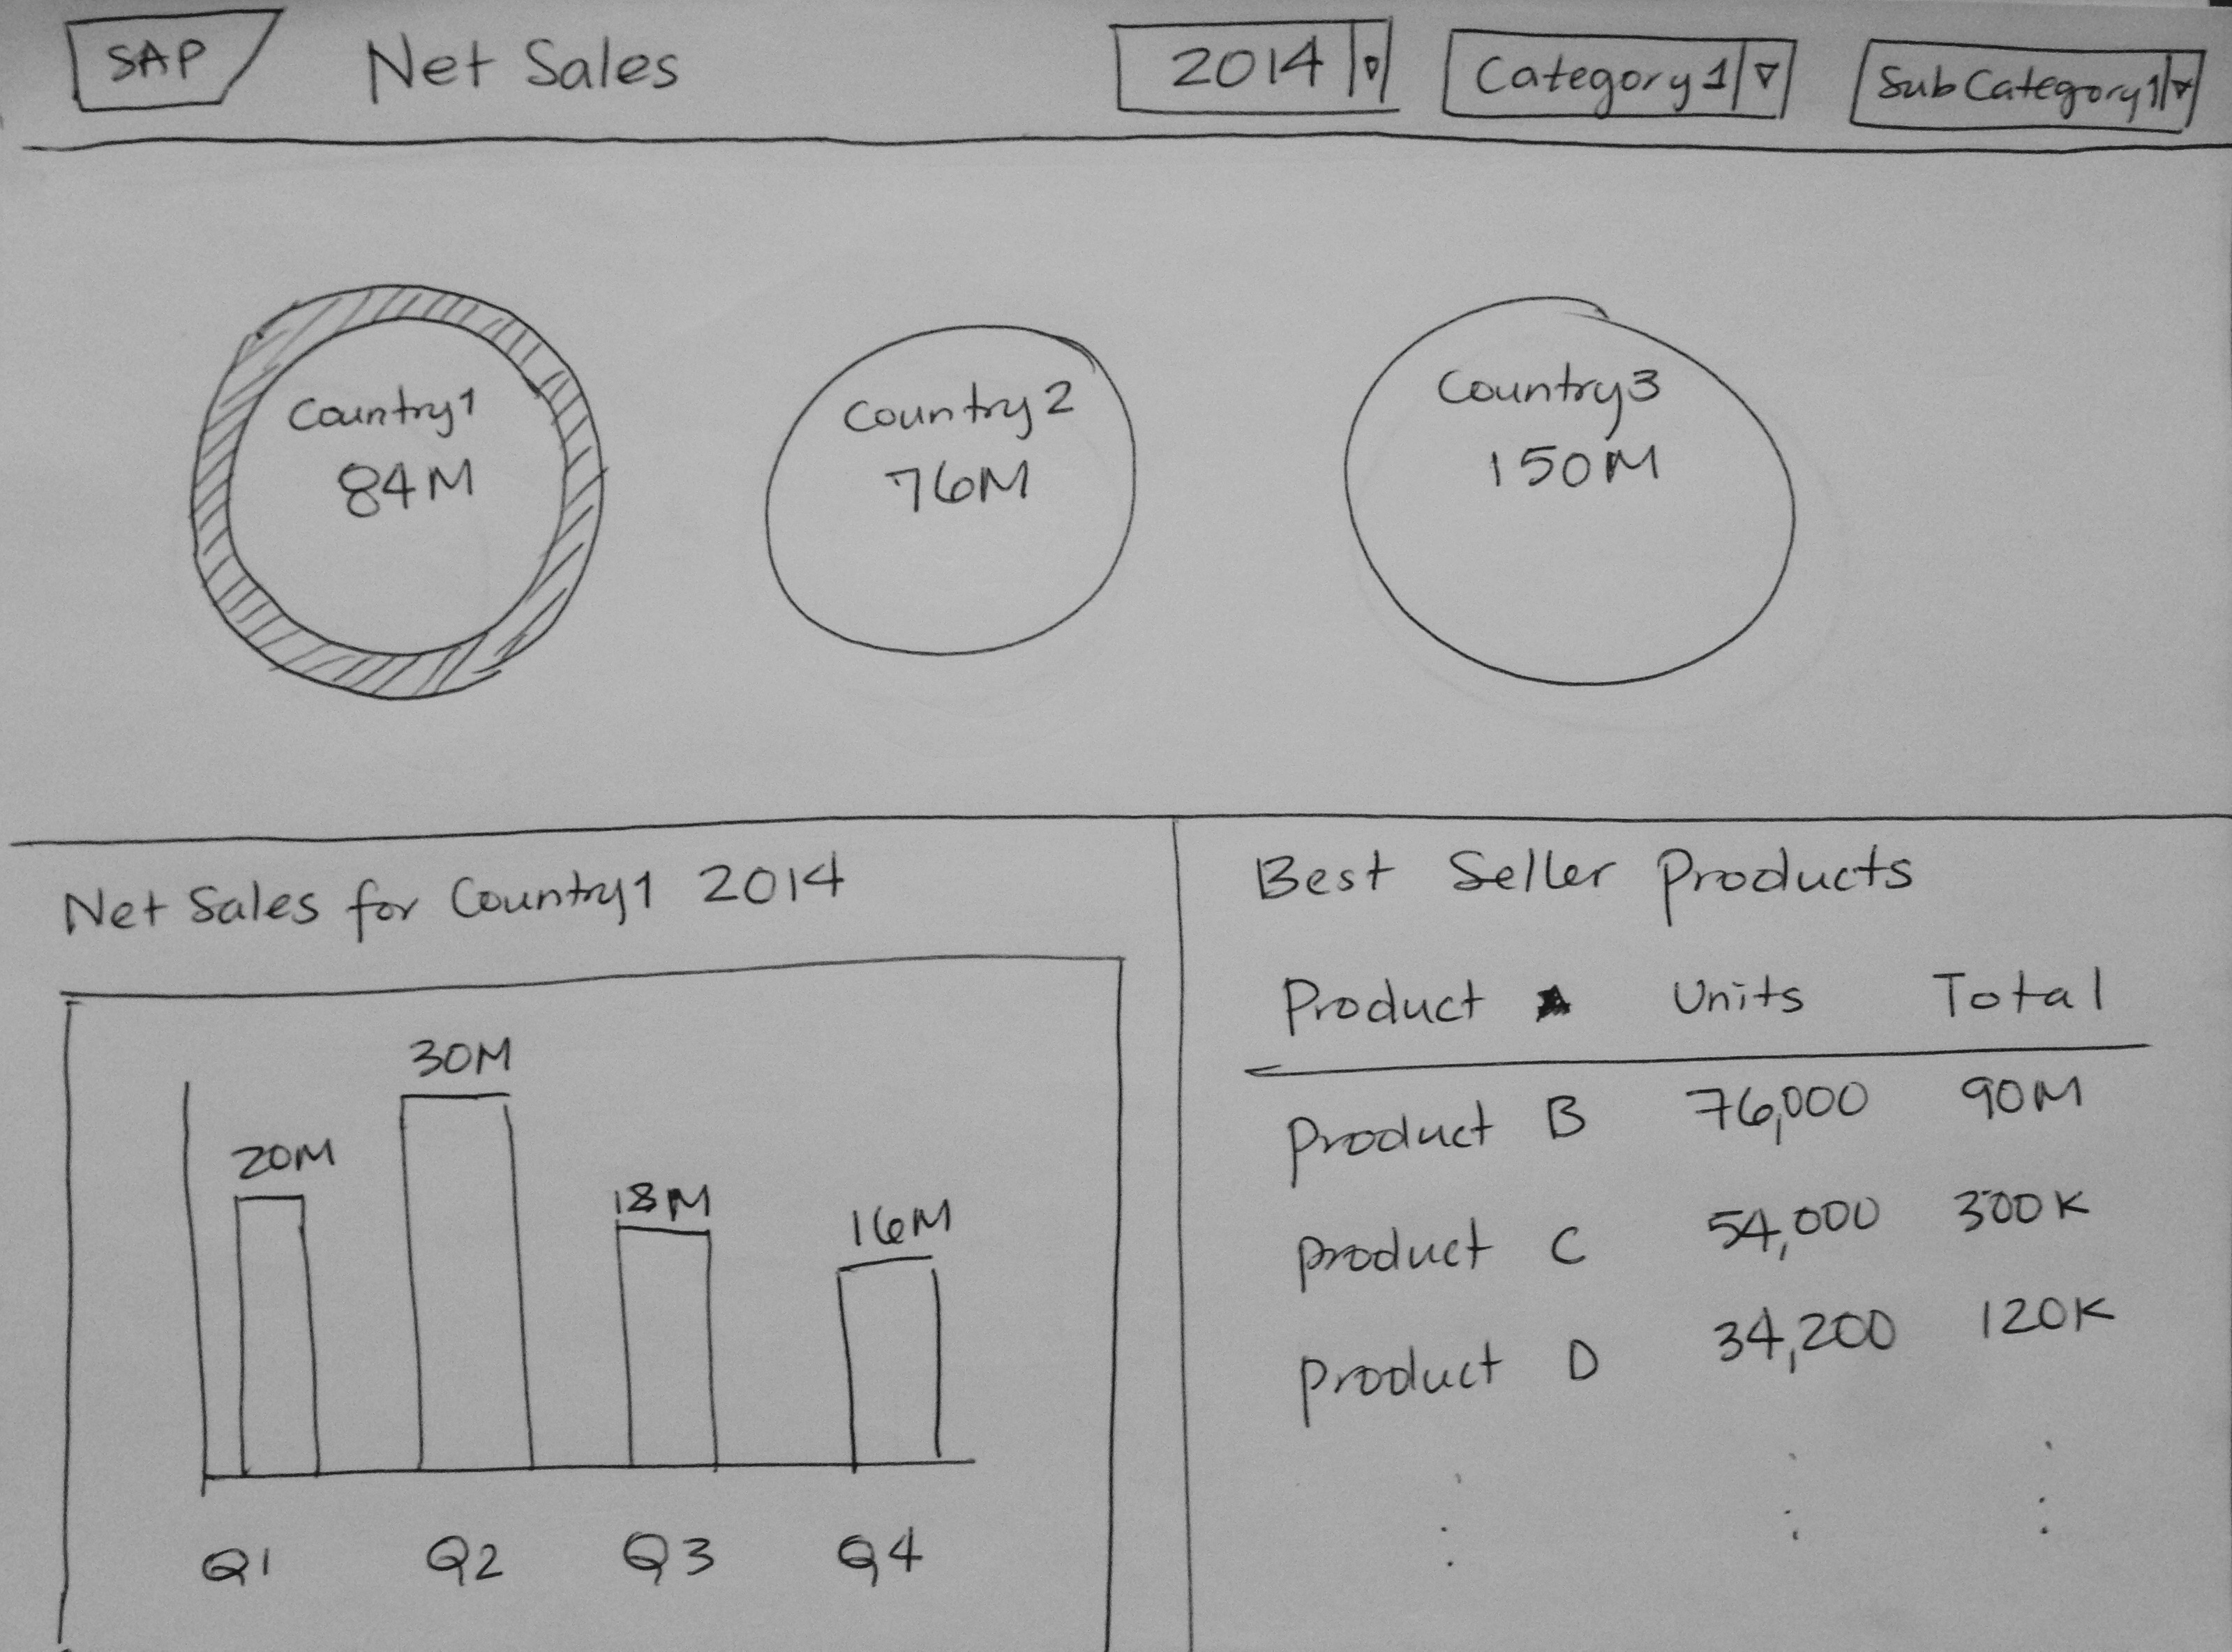 SAP Net Sales 2014 Category1 SubCategory1
Country1
84M
Country2
76M
Country3
150M
Net Sales for Country1 2014
30M
20M
18M
16M
Q1 Q2 Q3 Q4
Best Seller Products
Product Units Total
Product B 76,000 90M
Product C 54,000 300K
Product D 34,200 120K